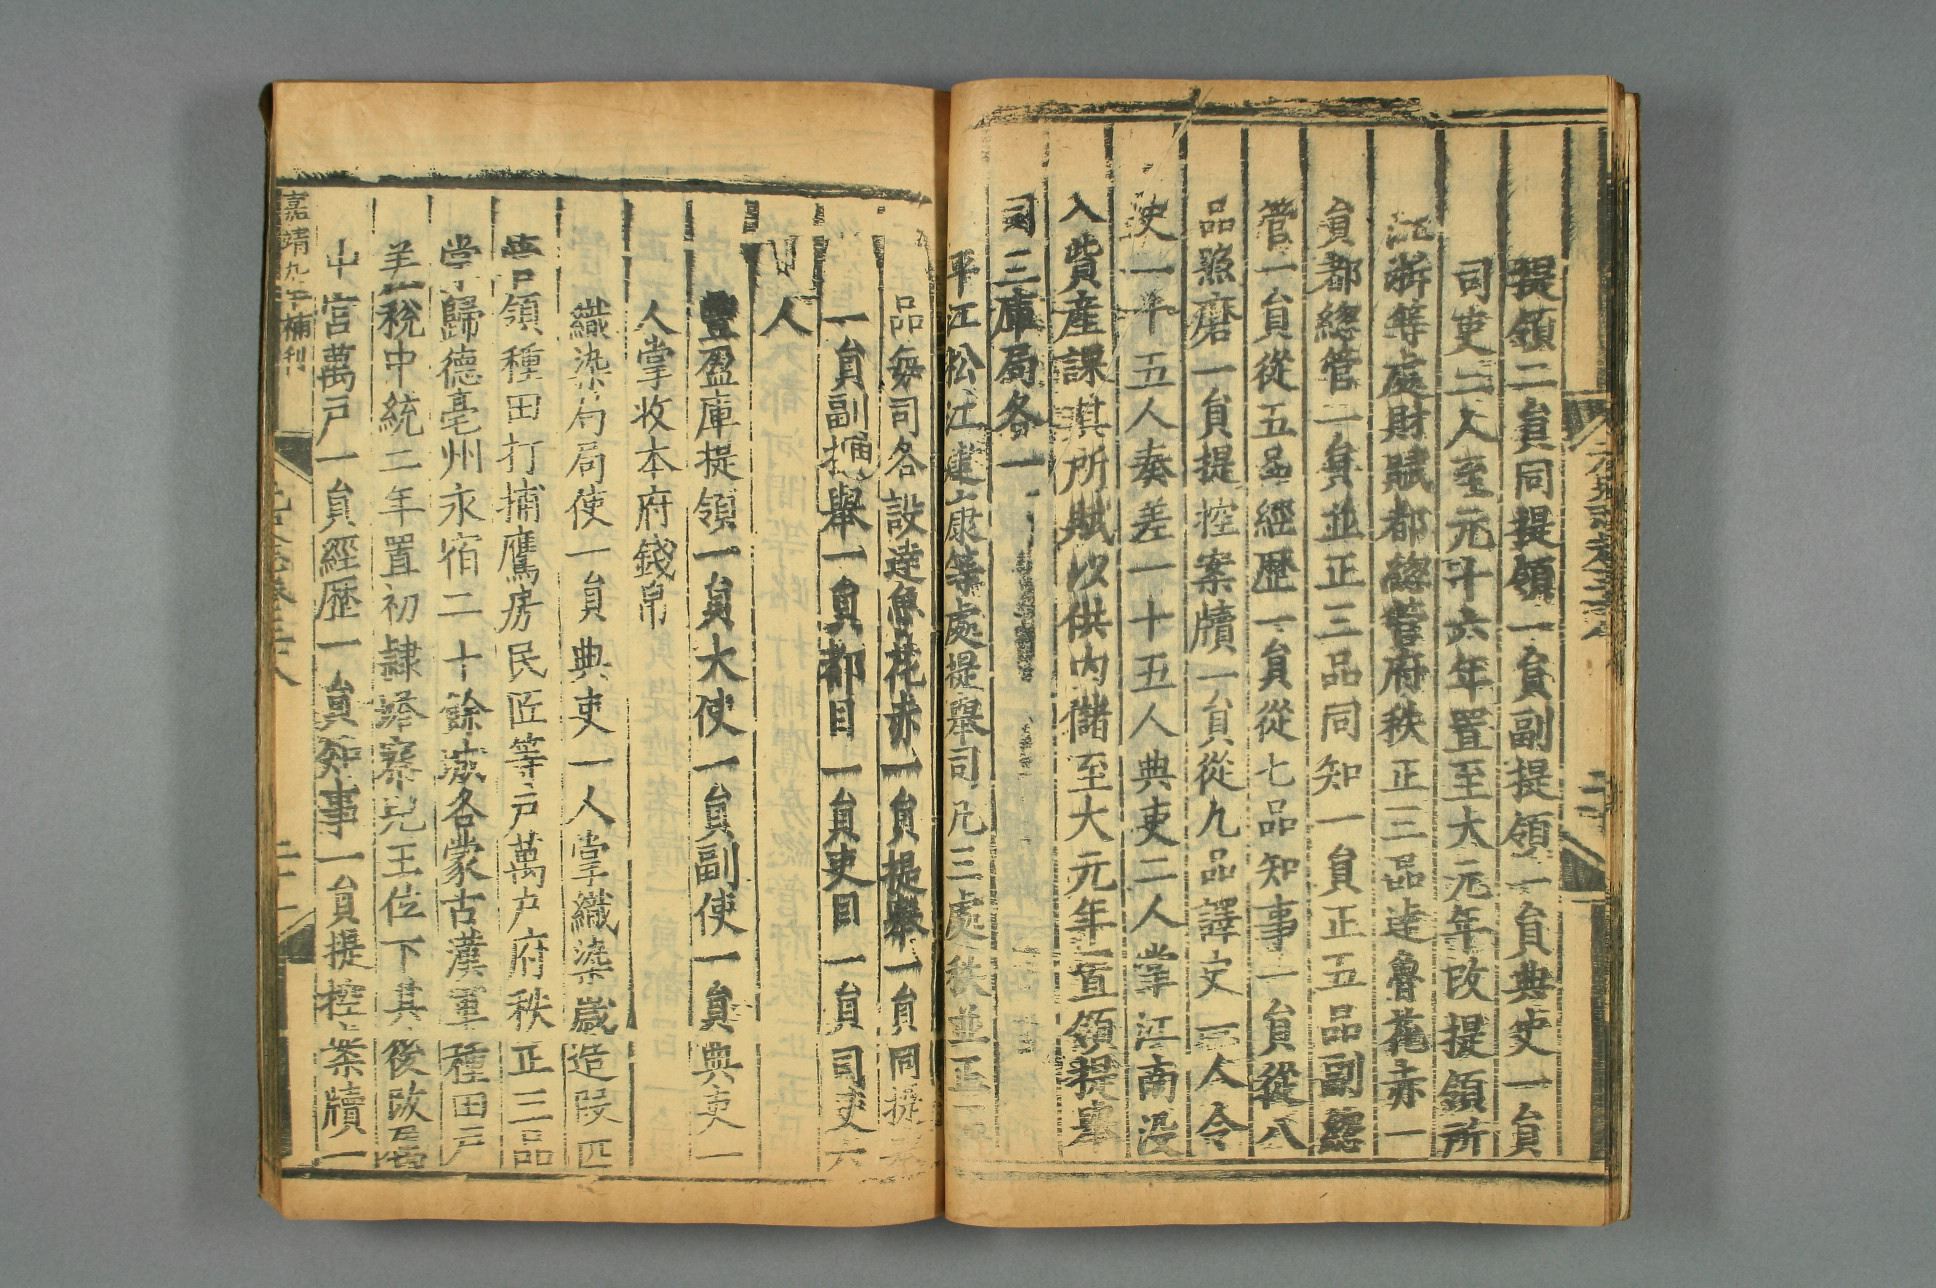 提領二員同提領一員副提領一員典史一員
司吏二人至元十六年置至大元年改提領所
江浙等處財賦都緫管府秩正三品達魯花赤一
員都緫管一員並正三品同知一員正五品副緫
管一員從五品經歷一員從七品知事一員從八
品照磨一員提控案牘一員從九品譯文一人令
史一十五人奏差一十五人典吏二人掌江南没
入貲産課其所賦以供内儲至大元年置領提舉
司三庫局各一
平江松江建康等處提舉司凡三處秩並正
品每司各設達魯花赤一員提舉一員同提
一員副提舉一員都目一員吏目一員司吏六
人
豐盈庫提領一員大使一員副使一員典吏一
人掌收本府錢帛
織染局局使一員典吏一人掌織染歲造段匹
管領種田打捕鷹房民匠等户萬户府秩正三品
掌歸德亳州永宿二十餘城各蒙古漢軍種田户
差稅中統二年置初隸塔察兒王位下其後改屬
中宮萬户一員經歷一員知事一員提控案牘一
元史志卷三十八
二十一
嘉靖九年補刊